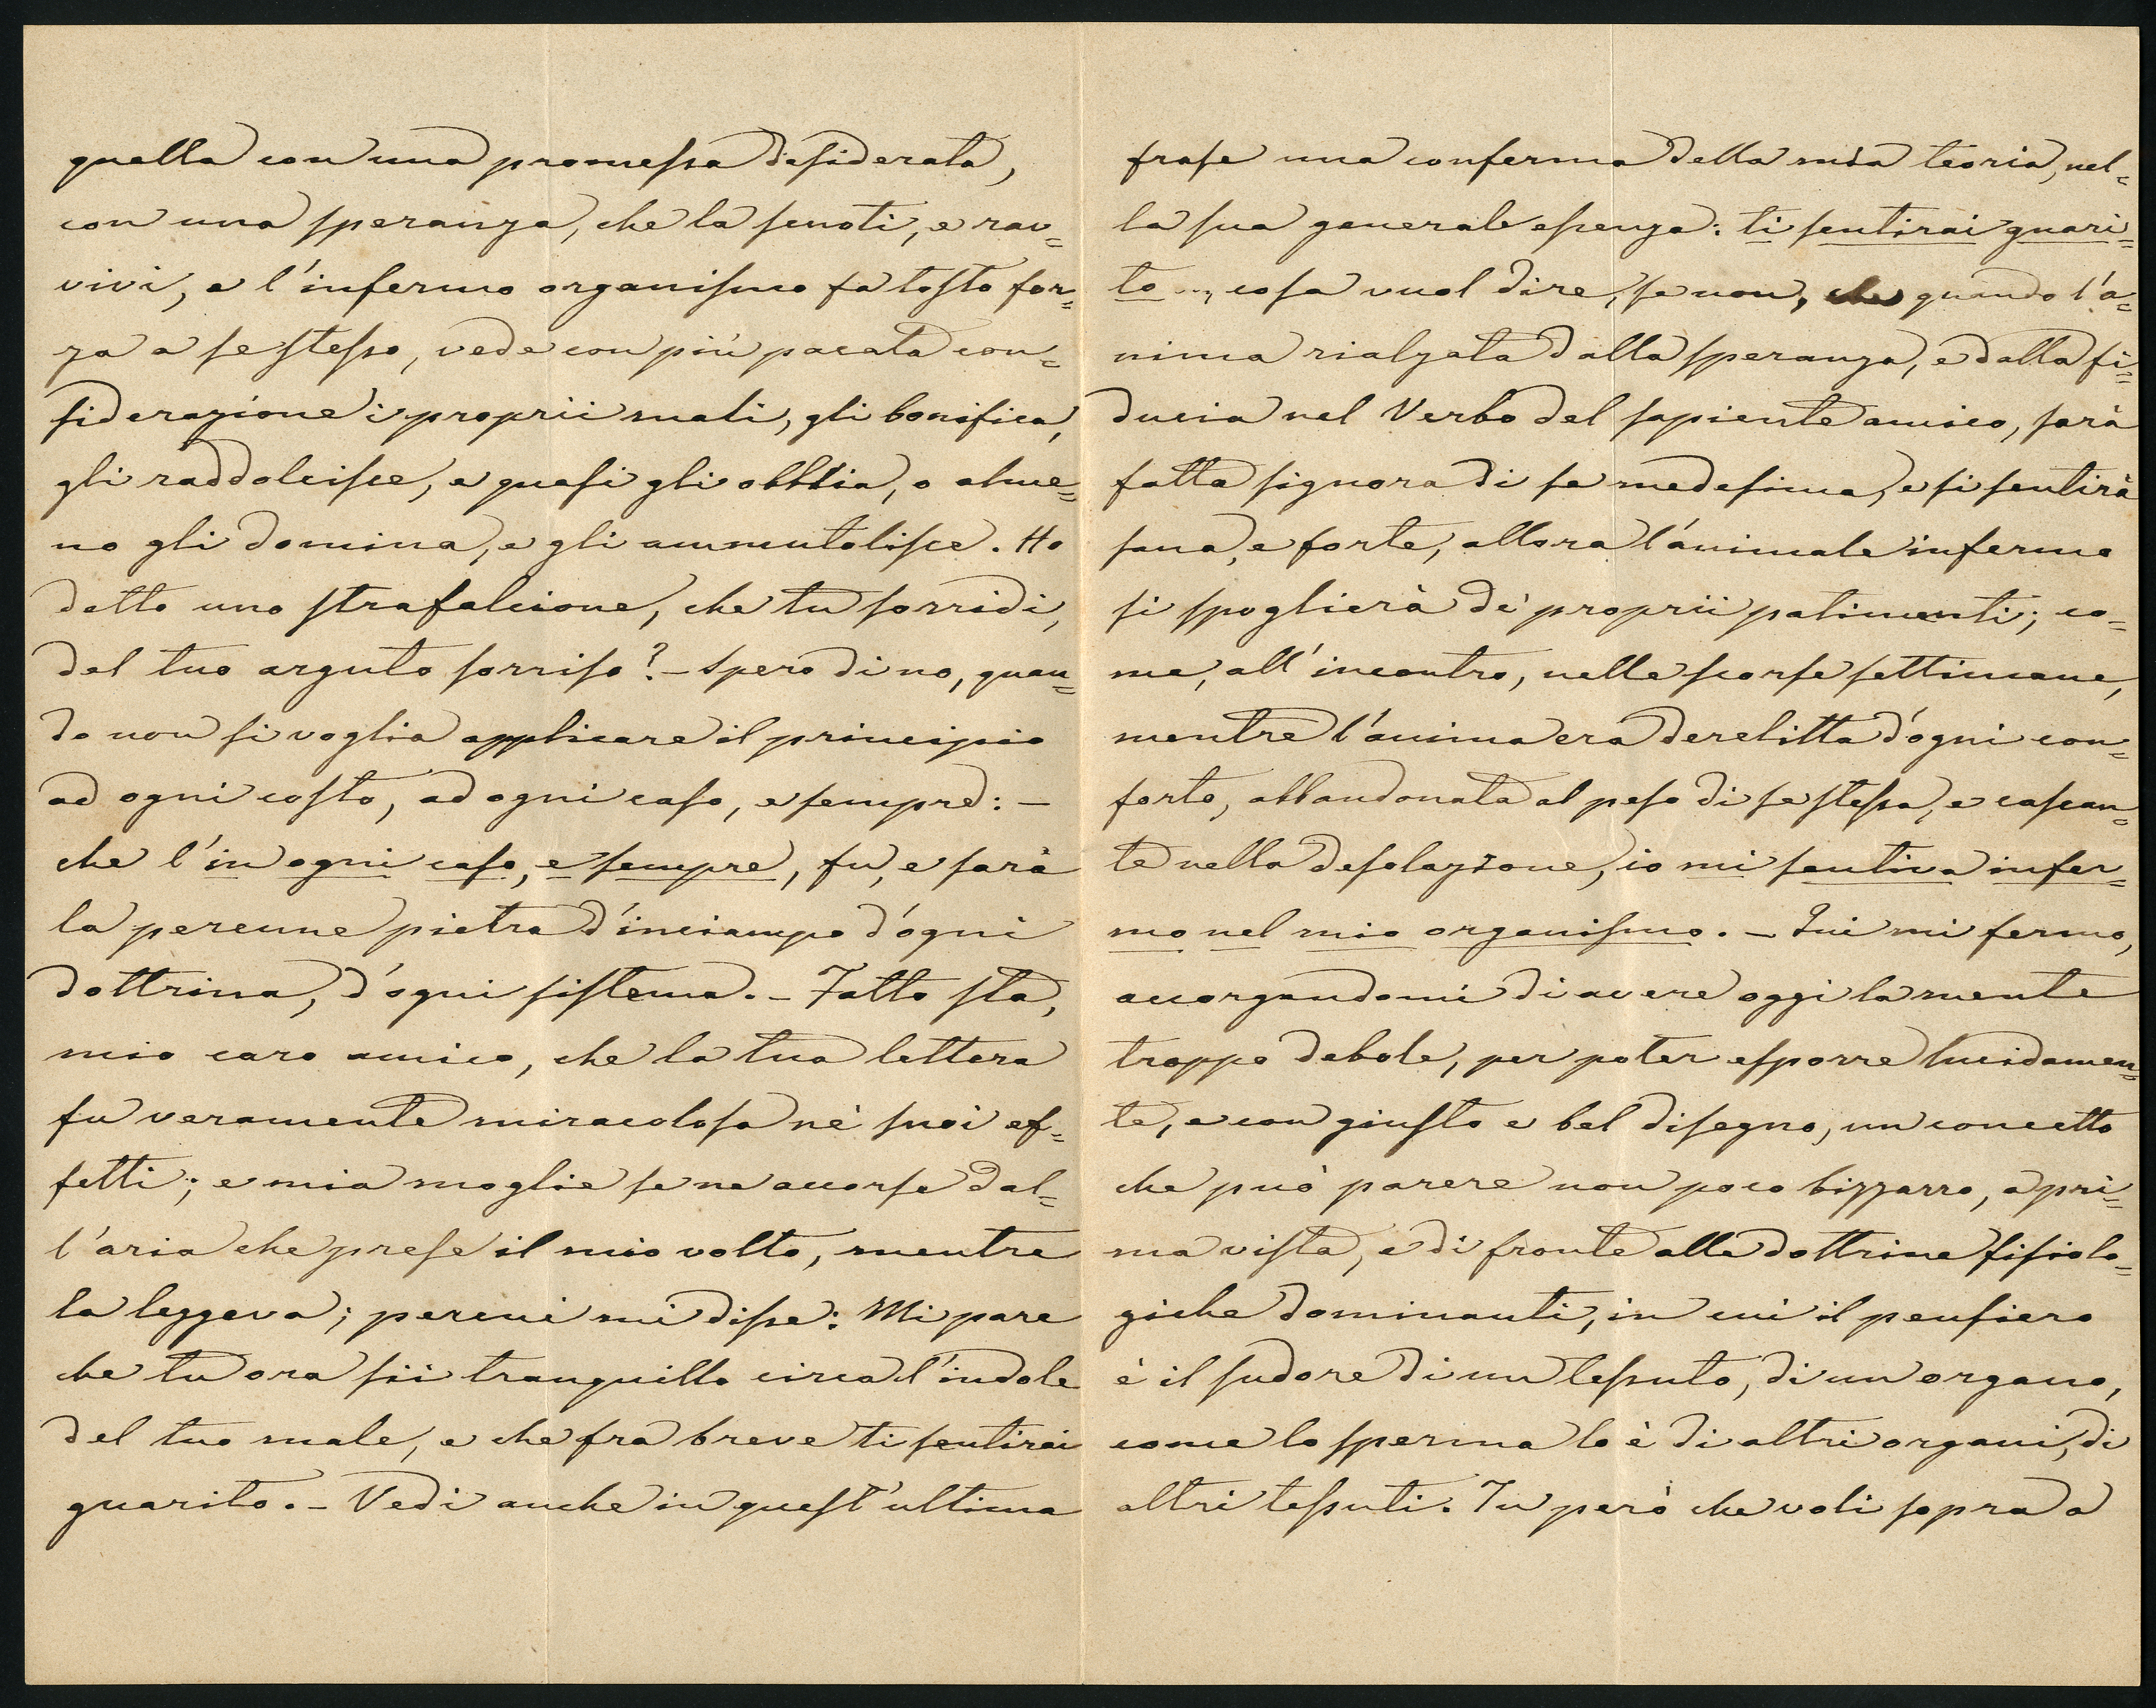 quella con una promessa desiderata,
con una speranza, che la scuoti, e rav=
vivi, e l'infermo organismo fa tosto for=
za a se stesso, vede con più pacata con=
siderazione i proprii mali, gli bonifica,
gli raddolcisce, e quasi gli obblia, o alme=
no gli domina, e gli ammutolisce. Ho
detto uno strafalcione, che tu sorridi,
del tuo arguto sorriso? – Spero di no, quan=
do non si voglia applicare il principio
ad ogni costo, ad ogni caso, e sempre: –
che l'in ogni caso, e sempre, fu, e sarà
la perenne pietra d'inciampo d'ogni
dottrina, d'ogni sistema. – Fatto sta,
mio caro amico, che la tua lettera
fu veramente miracolosa ne' suoi ef=
fetti; e mia moglie se ne accorse dal=
l'aria che prese il mio volto, mentre
la leggeva; percui mi disse: Mi pare
che tu ora sii tranquillo circa l'indole
del tuo male, e che fra breve ti sentirai
guarito. – Vedi anche in quest'ultima
frase una conferma della mia teoria, nel=
la sua generale essenza: ti sentirai guari=
to ..., cosa vuol dire, se non, quando l'a=
nima rialzata dalla speranza, e dalla fi=
ducia nel Verbo del sapiente amico, sarà
fatta signora di se medesima, e si sentirà
sana, e forte, allora l'animale infermo
si spoglierà de' proprii patimenti; co=
me, all'incontro, nelle scorse settimane,
mentre l'anima era derelitta d'ogni con=
forto, abbandonata al peso di se stessa, e cascan=
te nella desolazione, io mi sentiva infer=
mo nel mio organismo. – Qui mi fermo,
accorgendomi di avere oggi la mente
troppo debole, per poter esporre lucidamen=
te, e con giusto e bel disegno, un concetto
che può parere non poco bizzarro, a pri=
ma vista, e di fronte alle dottrine fisiolo=
giche dominanti, in cui il pensiero
è il sudore di un tessuto, di un organo,
come lo sperma lo è di altri organi, di
altri tessuti. Tu però che voli sopra a